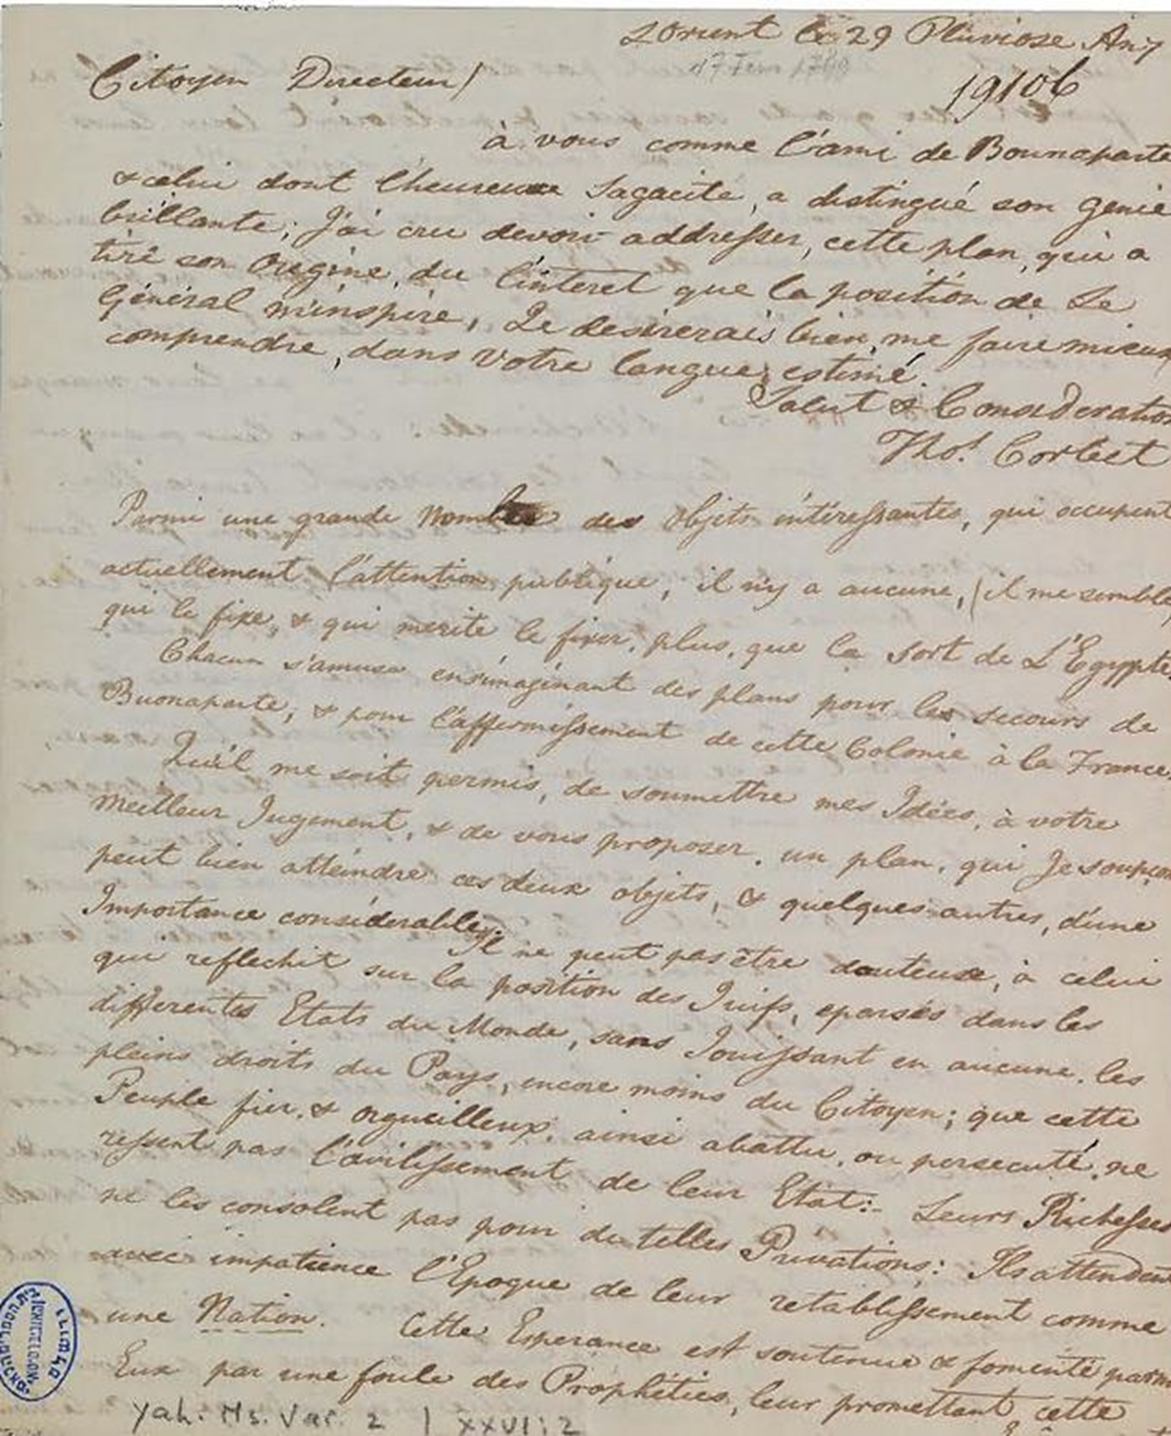 LOrient le 29 Pluviose An 7
17 Fevr 1799
Citoyen Directeur/
19106
à vous comme l'ami de Bounaparte
& celui dont l'heureuse Sagacite, a distingué son Génie
brillante; J'ai cru devoir addresser, cette plan, qui a
tiré son Origine, du l'interet que la position de Le
Général m'inspire, Je desirerais bien, me faire mieux
comprendre, dans votre langue, estimé.
Salut & Consideration
Thos. Corbet
Parmi une grande Nombre des Objets intéressantes, qui occupent
actuellement l'attention publique, il n'y a aucune, (il me semble
qui le fixe, & qui merite le fixer, plus, que la sort de L'Egypte.
Chacun s'amuse ens'imaginant des plans pour les secours de
Buonaparte; & pour l'affermissement de cette Colonie à la France
Qu'il me soit permis, de soumettre mes Idées, à votre
meilleur Jugement, & de vous proposer, un plan, qui Je soupçon
peut bien atteindre ces deux objets, & quelques autres, d'une
Importance considerable.
Il ne peut pas être douteuse, à celui
qui reflechit sur la position des Juifs, eparsés dans les
differentes Etats du Monde, sans Jouissant en aucune, les
pleins droits du Pays, encore moins du Citoyen; que cette
Peuple fier, & orgueilleux, ainsi abattu, ou persecuté, ne
ressent pas l'avilissement de leur Etat:- Leurs Richesses
ne les consolent pas pour de telles Privations: Ils attendent
avec impatience l'Epoque de leur retablissement comme
une Nation. Cette Esperance est soutenue & fomenté parmi
Eux par une foule des Prophéties, leur promettant cette
Yah. Ms. Var. 2 | XXVI:2